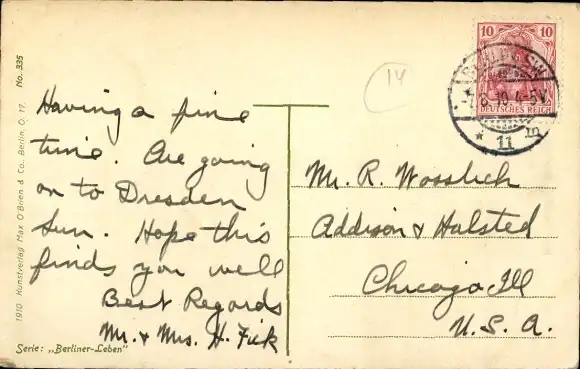 Having a fine
time. Are going
on to Dresden
Sun. Hope this
finds you well
Best Regards
Mr. & Mrs. H. Fick
Mr. R. Wosslich
Addison & Halsted
Chicago Ill
U. S. A.
14
10 10
DEUTSCHES REICH
BERLIN S.W.
8.10.4-5V.
* 11 m
1910 Kunstverlag Max O'Brien & Co. Berlin. O. 17. No. 335
Serie: „Berliner-Leben"